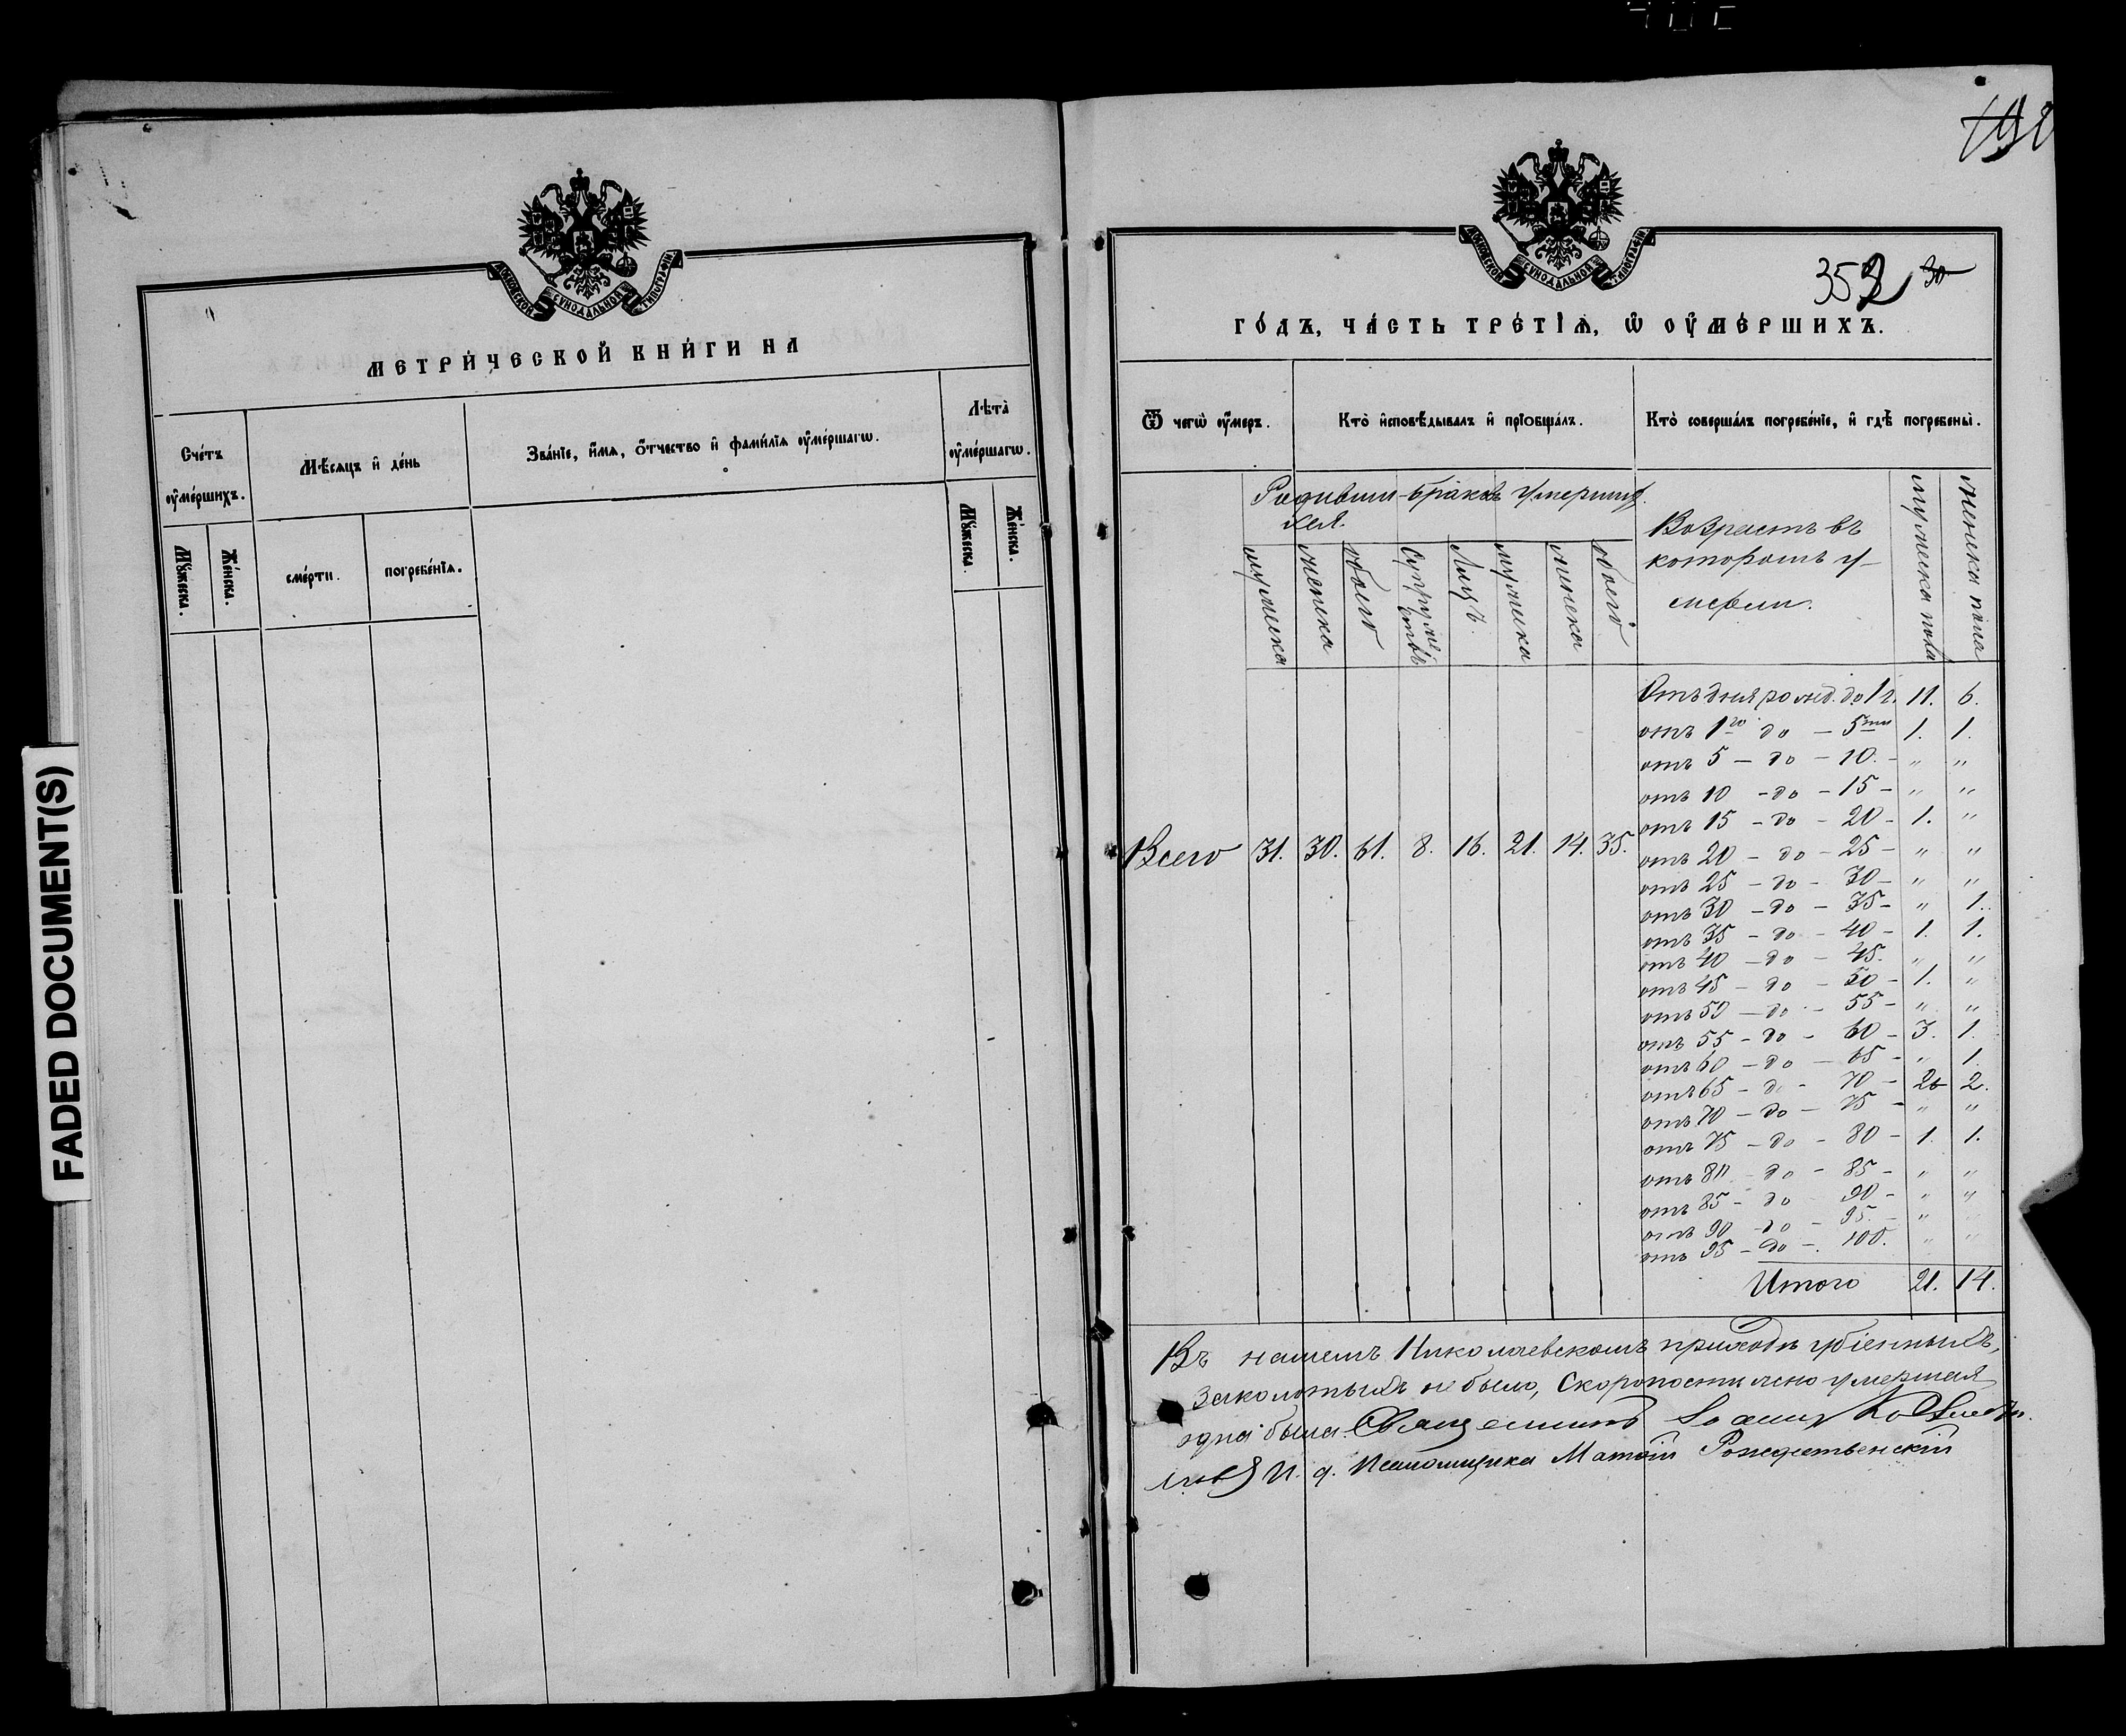 FADED DOCUMENT(S)
МОСКОВСКОЙ СѴНОДАЛЬНОЙ ТИПОГРАФІИ
МЕТРИ́ЧЕСКОЙ КНИ́ГИ НА
Сче́тъ ᲂу҆ме́ршихъ.
Мѣ́сяцъ и҆ де́нь
Зва́нїе, и҆́мѧ, ѻ҆́тчество и҆ фами́лїѧ ᲂу҆ме́ршагѡ.
Лѣта̀ ᲂу҆ме́ршагѡ.
Мꙋ́жеска.
Же́нска.
сме́рти.
погребе́нїѧ.
Мꙋ́жеска.
Же́нска.
МОСКОВСКОЙ СѴНОДАЛЬНОЙ ТИПОГРАФІИ
352 30
ГО́ДЪ, ЧА́СТЬ ТРЕ́ТЇѦ, Ѡ҆ ОУ҆МЕ́РШИХЪ.
Ѿ чегѡ̀ ᲂу҆́меръ.
Кто̀ и҆сповѣ́дывалъ и҆ прїѡбща́лъ.
Кто̀ соверша́лъ погребе́нїе, и҆ гдѣ̀ погребены̀.
Родивши- браковъ умерших.
хся.
Возрастъ въ
которомъ у-
мерли.
мужеска
женска
обоего
Супружествъ
Лицъ.
мужеска
женска
обоего
мужеска пола
женска пола
Отъ дня рожд. до 1 г. 11. 6.
отъ 1го до — 5ти 1. 1.
отъ 5 — до — 10. — " "
отъ 10 — до — 15 — " "
отъ 15 — до — 20 — 1. "
Всего 31. 30. 61. 8. 16. 21. 14. 35.
отъ 20 — до — 25 — " "
отъ 25 — до — 30 — " "
отъ 30 — до — 35 — " 1.
отъ 35 — до — 40 — 1. 1.
отъ 40 — до — 45. " "
отъ 45 — до — 50 — 1. "
отъ 50 — до — 55 — " "
отъ 55 — до — 60 — 3. 1.
отъ 60 — до — 65 — " 1.
отъ 65 — до — 70 — 2 2.
отъ 70 — до — 75 — " "
отъ 75 — до — 80 — 1. 1.
отъ 80 — до — 85 — " "
отъ 85 — до — 90 — " "
отъ 90 — до — 95. — " "
отъ 95 — до — 100. " "
Итого 21. 14.
Въ нашемъ Николаевскомъ приходѣ убіенныхъ,
заколотыхъ не было, Скоропостижно умершая
одна была. Священникъ Іоаннъ
И. д. Псаломщика Матѳій Рождественскій